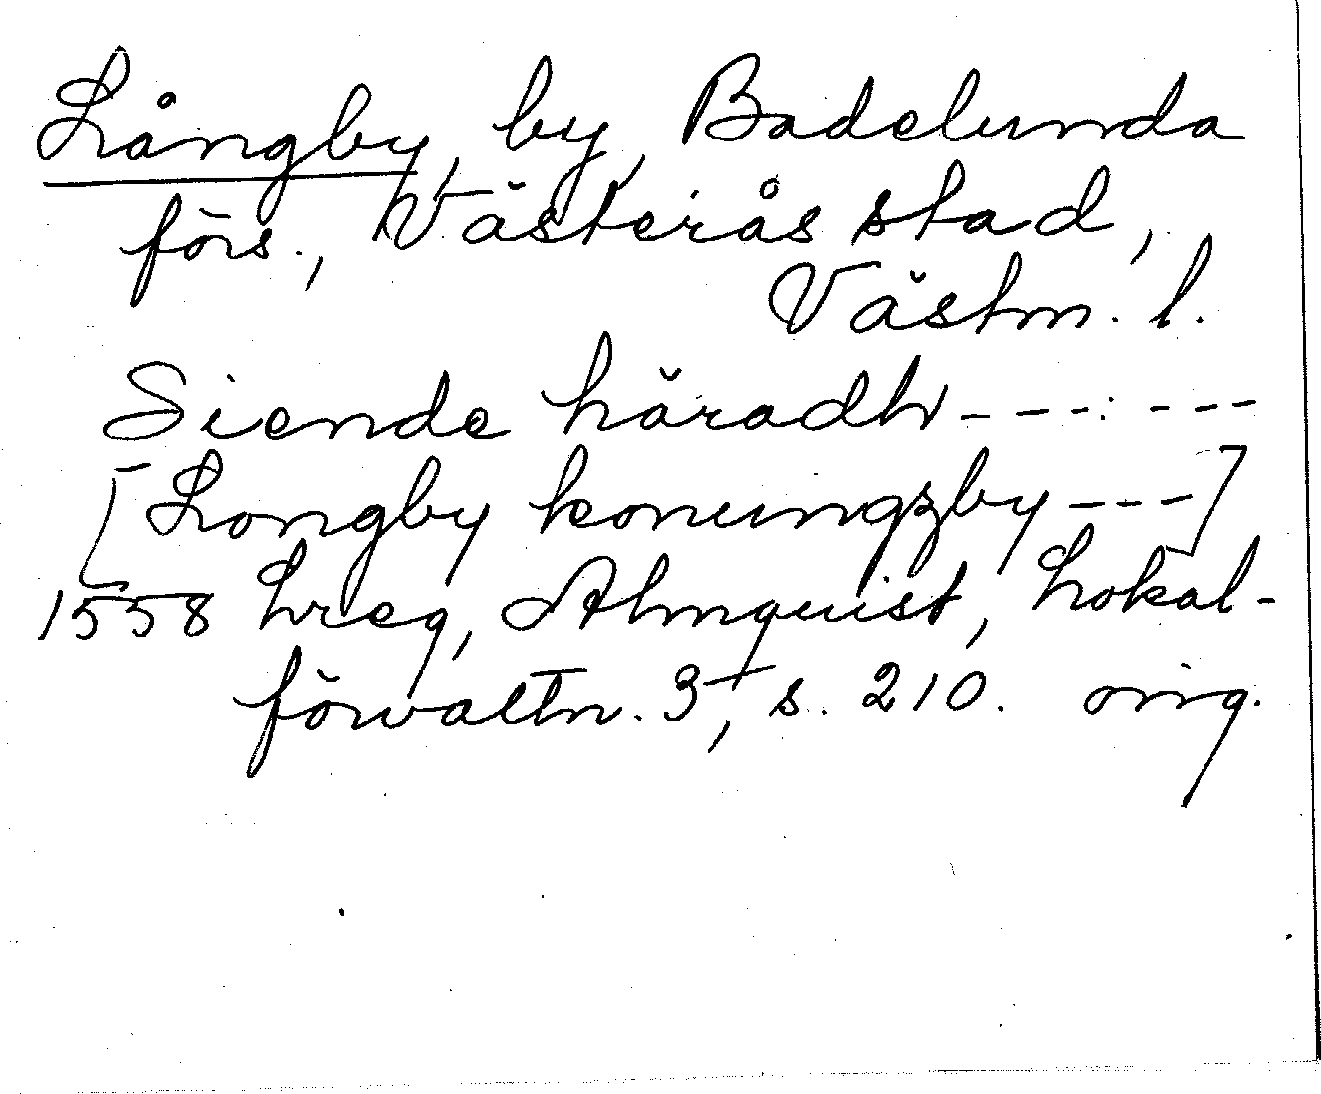 Långby, by, Badelunda
förs., Västerås stad,
Västm. l.
Siende häradh - - - - - -
[Longby konungzby - - -]
1558 Lreg, Almquist, Lokal-
förvaltn. 3, s. 210. orig.